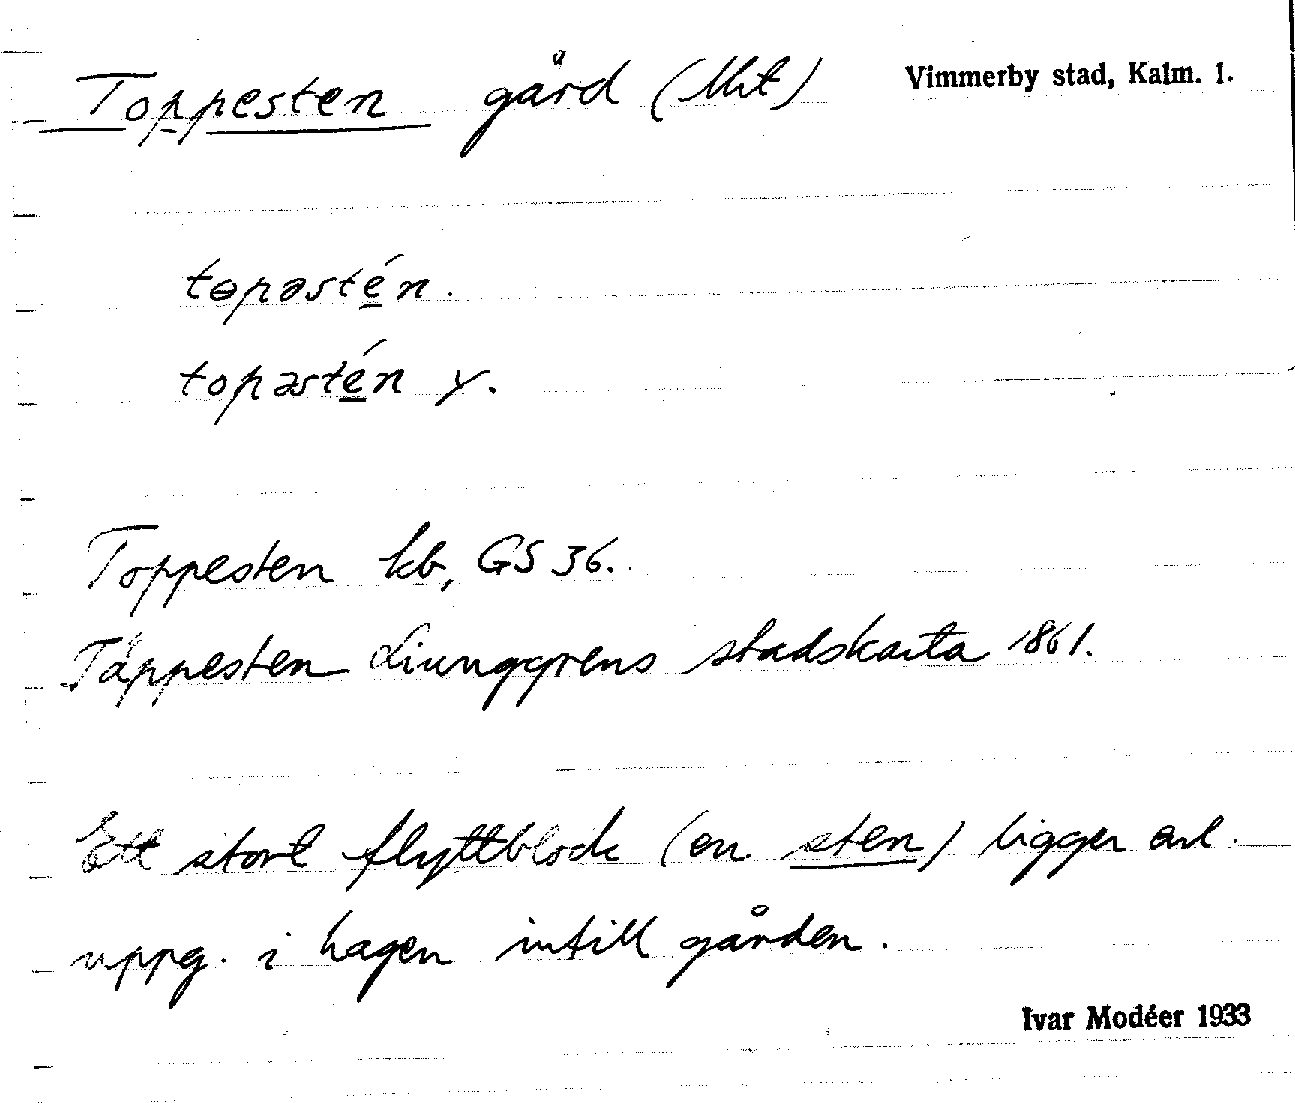 Toppesten gård (Mt) Vimmerby stad, Kalm. l.
tɵpəstén.
topəstén y.
Toppesten kb, GS 36.
Tåppesten Liunggrens stadskarta 1861.
Ett stort flyttblock (en sten) ligger enl.
uppg. i hagen intill gården.
Ivar Modéer 1933